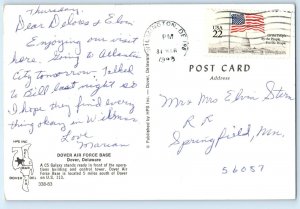 Thursday
Dear Delores & Elvin
Enjoying our visit
here. Going to Atlantic
City tomorrow. Talked
to Bill last night so
I hope they find every
thing okay in Wildman
Love
Marian
DOVER AIR FORCE BASE
Dover, Delaware
A C5 Galaxy stands ready in front of the oper-
ations building and control tower. Dover Air
Force Base is located 5 miles south of Dover
on U.S. 113.
338-63
HPS INC.
DOVER DEL.
© Published by HPS Inc., Dover, Delaware
WILMINGTON DE
PM
USA
22
Of the People
By the People
For the People
POST CARD
Address
Mr & Mrs Elvin Stern
RR
Springfield, Mn.
56087